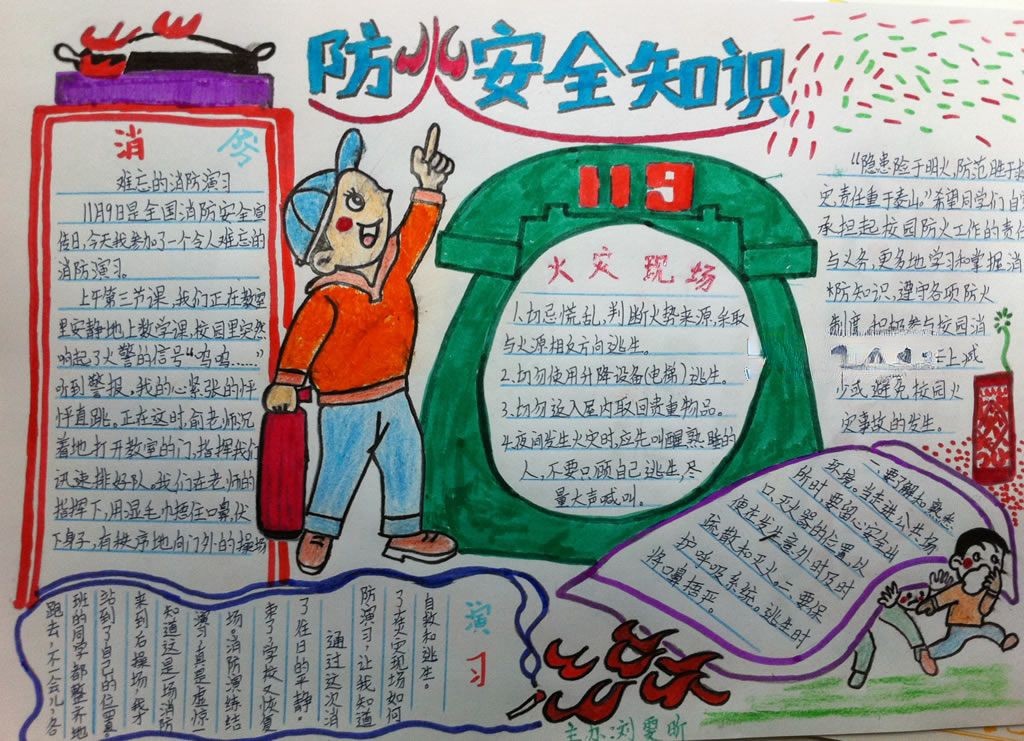 防火安全知识
消 防
难忘的消防演习
11月9日是全国消防安全宣
传日,今天我参加了一个令人难忘的
消防演习。
上午第三节课,我们正在教室
里安静地上数学课,校园里突然
响起了火警的信号“呜呜……”
听到警报,我的心紧张的怦
怦直跳。正在这时俞老师沉
着地打开教室的门,指挥我们
迅速排好队。我们在老师的
指挥下,用湿毛巾捂住口鼻,伏
下身子,有秩序地向门外的操场
演习
跑去,不一会儿,各
班的同学都整齐地
站到了自己的位置。
来到后操场,我才
知道这是一场消防
演习,真是虚惊一
场。消防演练结
束了,学校又恢复
了往日的平静。
通过这次消
防演习,让我知道
了在火灾现场如何
自救和逃生。
119
火灾现场
1.切忌慌乱,判断火势来源,采取
与火源相反方向逃生。
2.切勿使用升降设备(电梯)逃生。
3.切勿返入屋内取回贵重物品。
4.夜间发生火灾时,应先叫醒熟睡的
人,不要只顾自己逃生,尽
量大声喊叫。
“隐患险于明火,防范胜于
灾责任重于泰山”希望同学们自
承担起校园防火工作的责任
与义务,更多地学习和掌握消
防知识,遵守各项防火
制度,积极参与校园消
少或避免校园火
灾事故的发生。
一、要了解和熟悉
环境。当走进公共场
所时,要留心安全出
口、灭火器的位置,以
便在发生意外时及时
疏散和灭火。二、要保
护呼吸系统。逃生时
将口鼻捂严。
主办刘雯昕